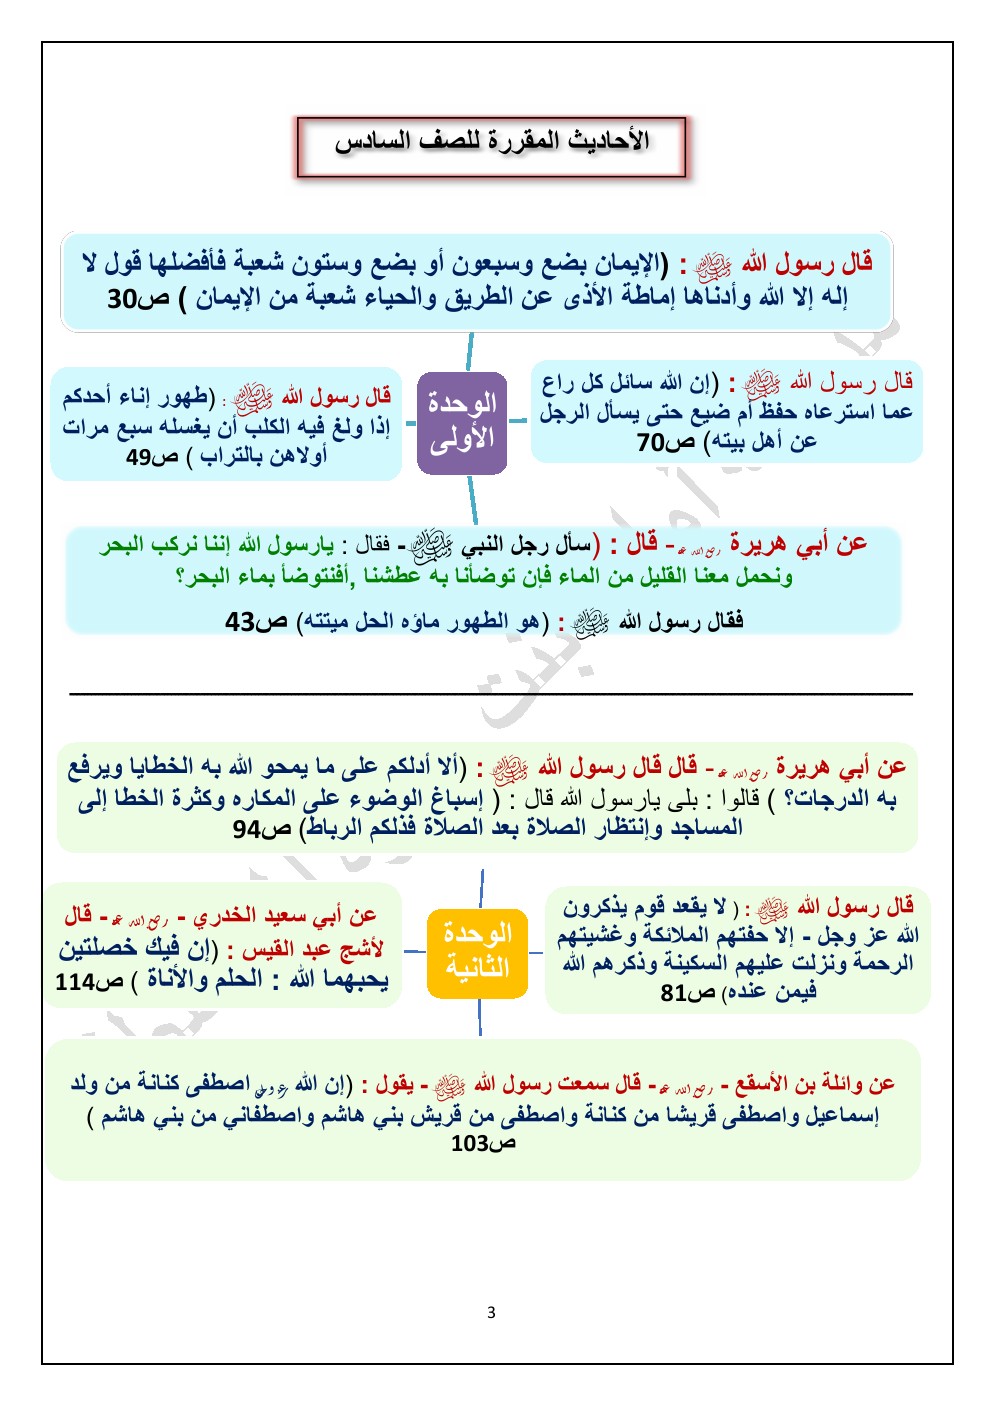 الأحاديث المقررة للصف السادس
قال رسول الله ﷺ : (الإيمان بضع وسبعون أو بضع وستون شعبة فأفضلها قول لا
إله إلا الله وأدناها إماطة الأذى عن الطريق والحياء شعبة من الإيمان ) ص30
قال رسول الله ﷺ : (إن الله سائل كل راع
عما استرعاه حفظ أم ضيع حتى يسأل الرجل
عن أهل بيته) ص70
الوحدة
الأولى
قال رسول الله ﷺ : (طهور إناء أحدكم
إذا ولغ فيه الكلب أن يغسله سبع مرات
أولاهن بالتراب ) ص49
عن أبي هريرة رضي الله عنه - قال : (سأل رجل النبي ﷺ - فقال : يارسول الله إننا نركب البحر
ونحمل معنا القليل من الماء فإن توضأنا به عطشنا ,أفنتوضأ بماء البحر؟
فقال رسول الله ﷺ : (هو الطهور ماؤه الحل ميتته) ص43
عن أبي هريرة رضي الله عنه - قال قال رسول الله ﷺ : (ألا أدلكم على ما يمحو الله به الخطايا ويرفع
به الدرجات؟ ) قالوا : بلى يارسول الله قال : ( إسباغ الوضوء على المكاره وكثرة الخطا إلى
المساجد وإنتظار الصلاة بعد الصلاة فذلكم الرباط) ص94
قال رسول الله ﷺ : ( لا يقعد قوم يذكرون
الله عز وجل - إلا حفتهم الملائكة وغشيتهم
الرحمة ونزلت عليهم السكينة وذكرهم الله
فيمن عنده) ص81
الوحدة
الثانية
عن أبي سعيد الخدري - رضي الله عنه - قال
لأشج عبد القيس : (إن فيك خصلتين
يحبهما الله : الحلم والأناة ) ص114
عن واثلة بن الأسقع - رضي الله عنه - قال سمعت رسول الله ﷺ - يقول : (إن الله عز وجل اصطفى كنانة من ولد
إسماعيل واصطفى قريشا من كنانة واصطفى من قريش بني هاشم واصطفاني من بني هاشم )
ص103
3